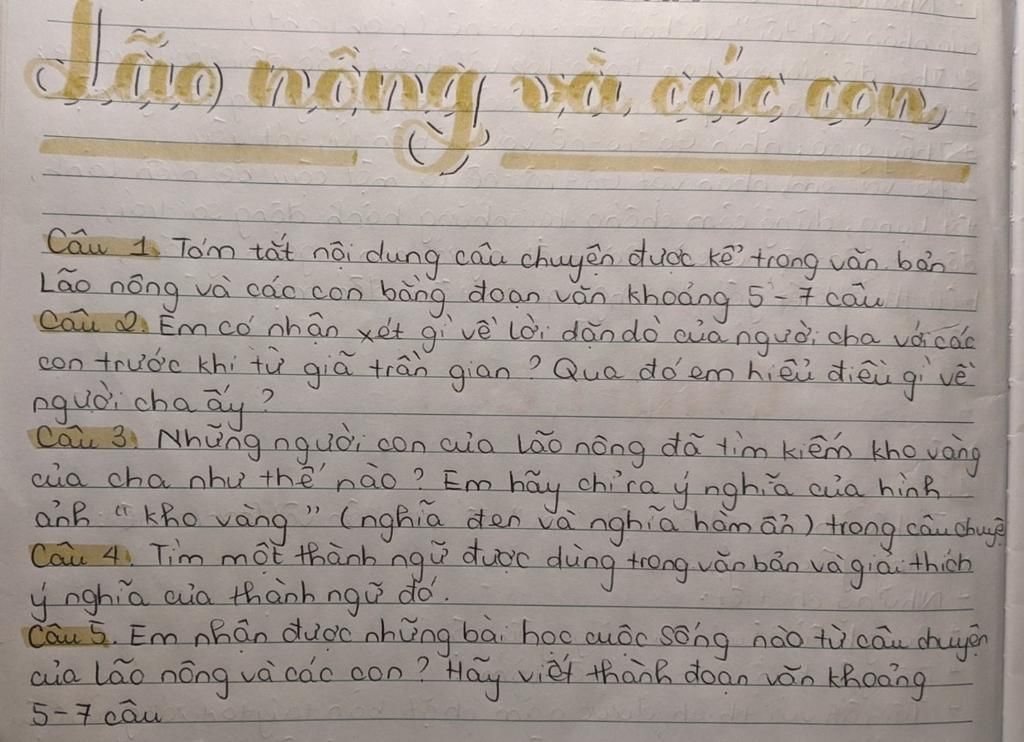 Lão nông và các con
Câu 1. Tóm tắt nội dung câu chuyện được kể trong văn bản
Lão nông và các con bằng đoạn văn khoảng 5-7 câu
Câu 2. Em có nhận xét gì về lời dặn dò của người cha với các
con trước khi từ giã trần gian? Qua đó em hiểu điều gì về
người cha ấy?
Câu 3. Những người con của lão nông đã tìm kiếm kho vàng
của cha như thế nào? Em hãy chỉ ra ý nghĩa của hình
ảnh "kho vàng" (nghĩa đen và nghĩa hàm ẩn) trong câu chuyệ
Câu 4. Tìm một thành ngữ được dùng trong văn bản và giải thích
ý nghĩa của thành ngữ đó.
Câu 5. Em nhận được những bài học cuộc sống nào từ câu chuyện
của lão nông và các con? Hãy viết thành đoạn văn khoảng
5-7 câu